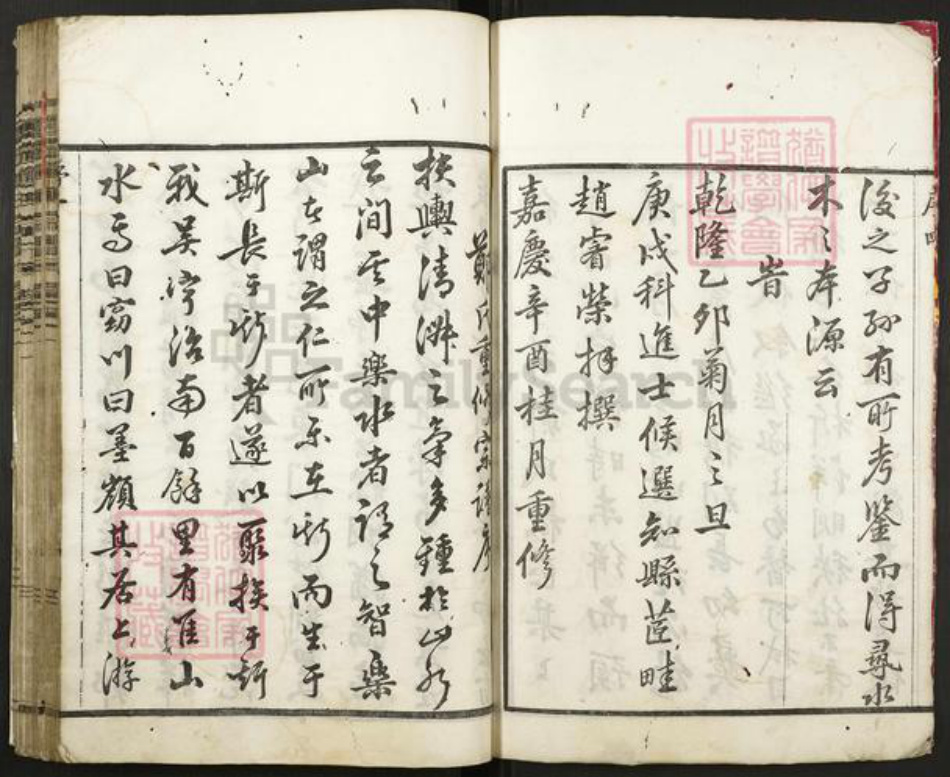 後之子孫有所考鑒而得尋水
木之本源云
旹
乾隆乙卯菊月之旦
庚戌科進士候選知縣茝畦
趙睿榮拜撰
嘉慶辛酉桂月重修
鄭氏重修宗譜序
扶輿清淑之氣多鍾於山水
之間其中樂水者謂之智樂
山者謂之仁所樂在斯而生于
斯長于斯者遂以聚族于斯
我吳寧治南百餘里有 山
水焉曰 川曰墨嶺其居上游
FamilySearch